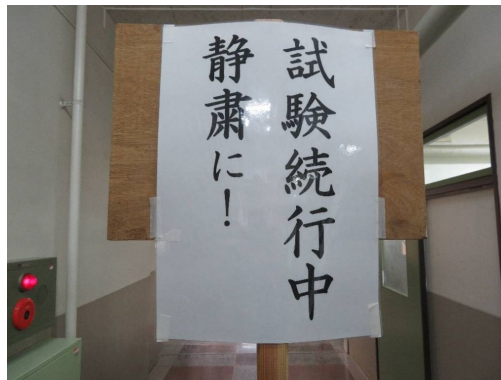 試験続行中
静粛に！